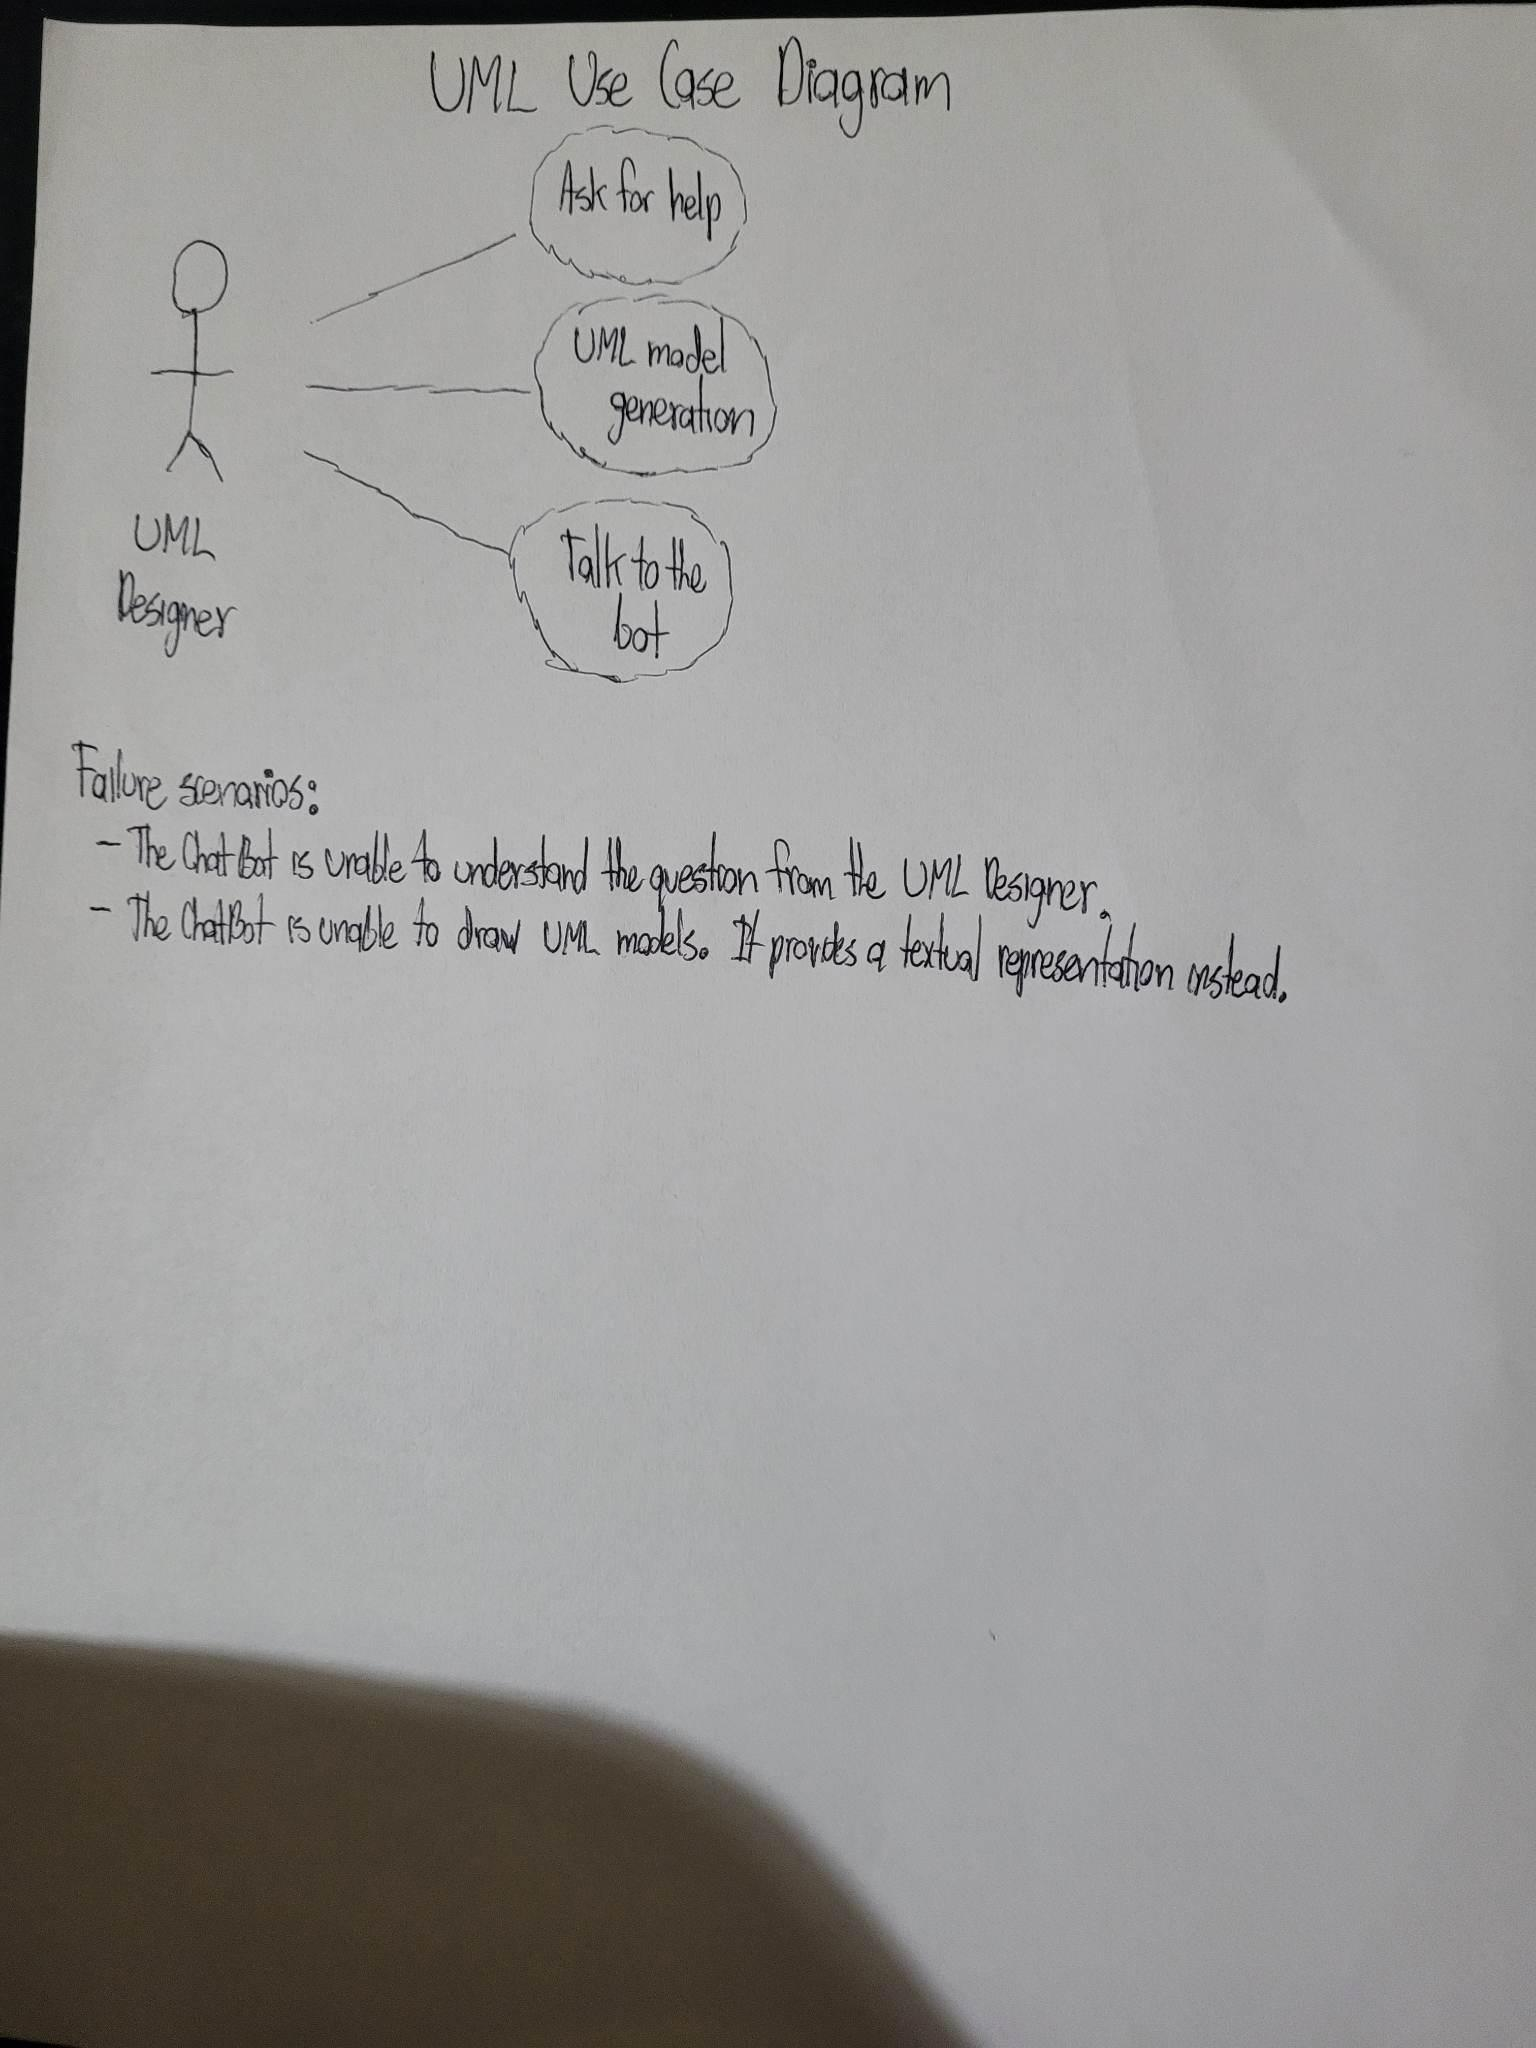 UML Use Case Diagram
Ask for help
UML model
generation
Talk to the
bot
UML
Designer
Failure scenarios:
- The ChatBot is unable to understand the question from the UML Designer.
- The ChatBot is unable to draw UML models. It provides a textual representation instead.